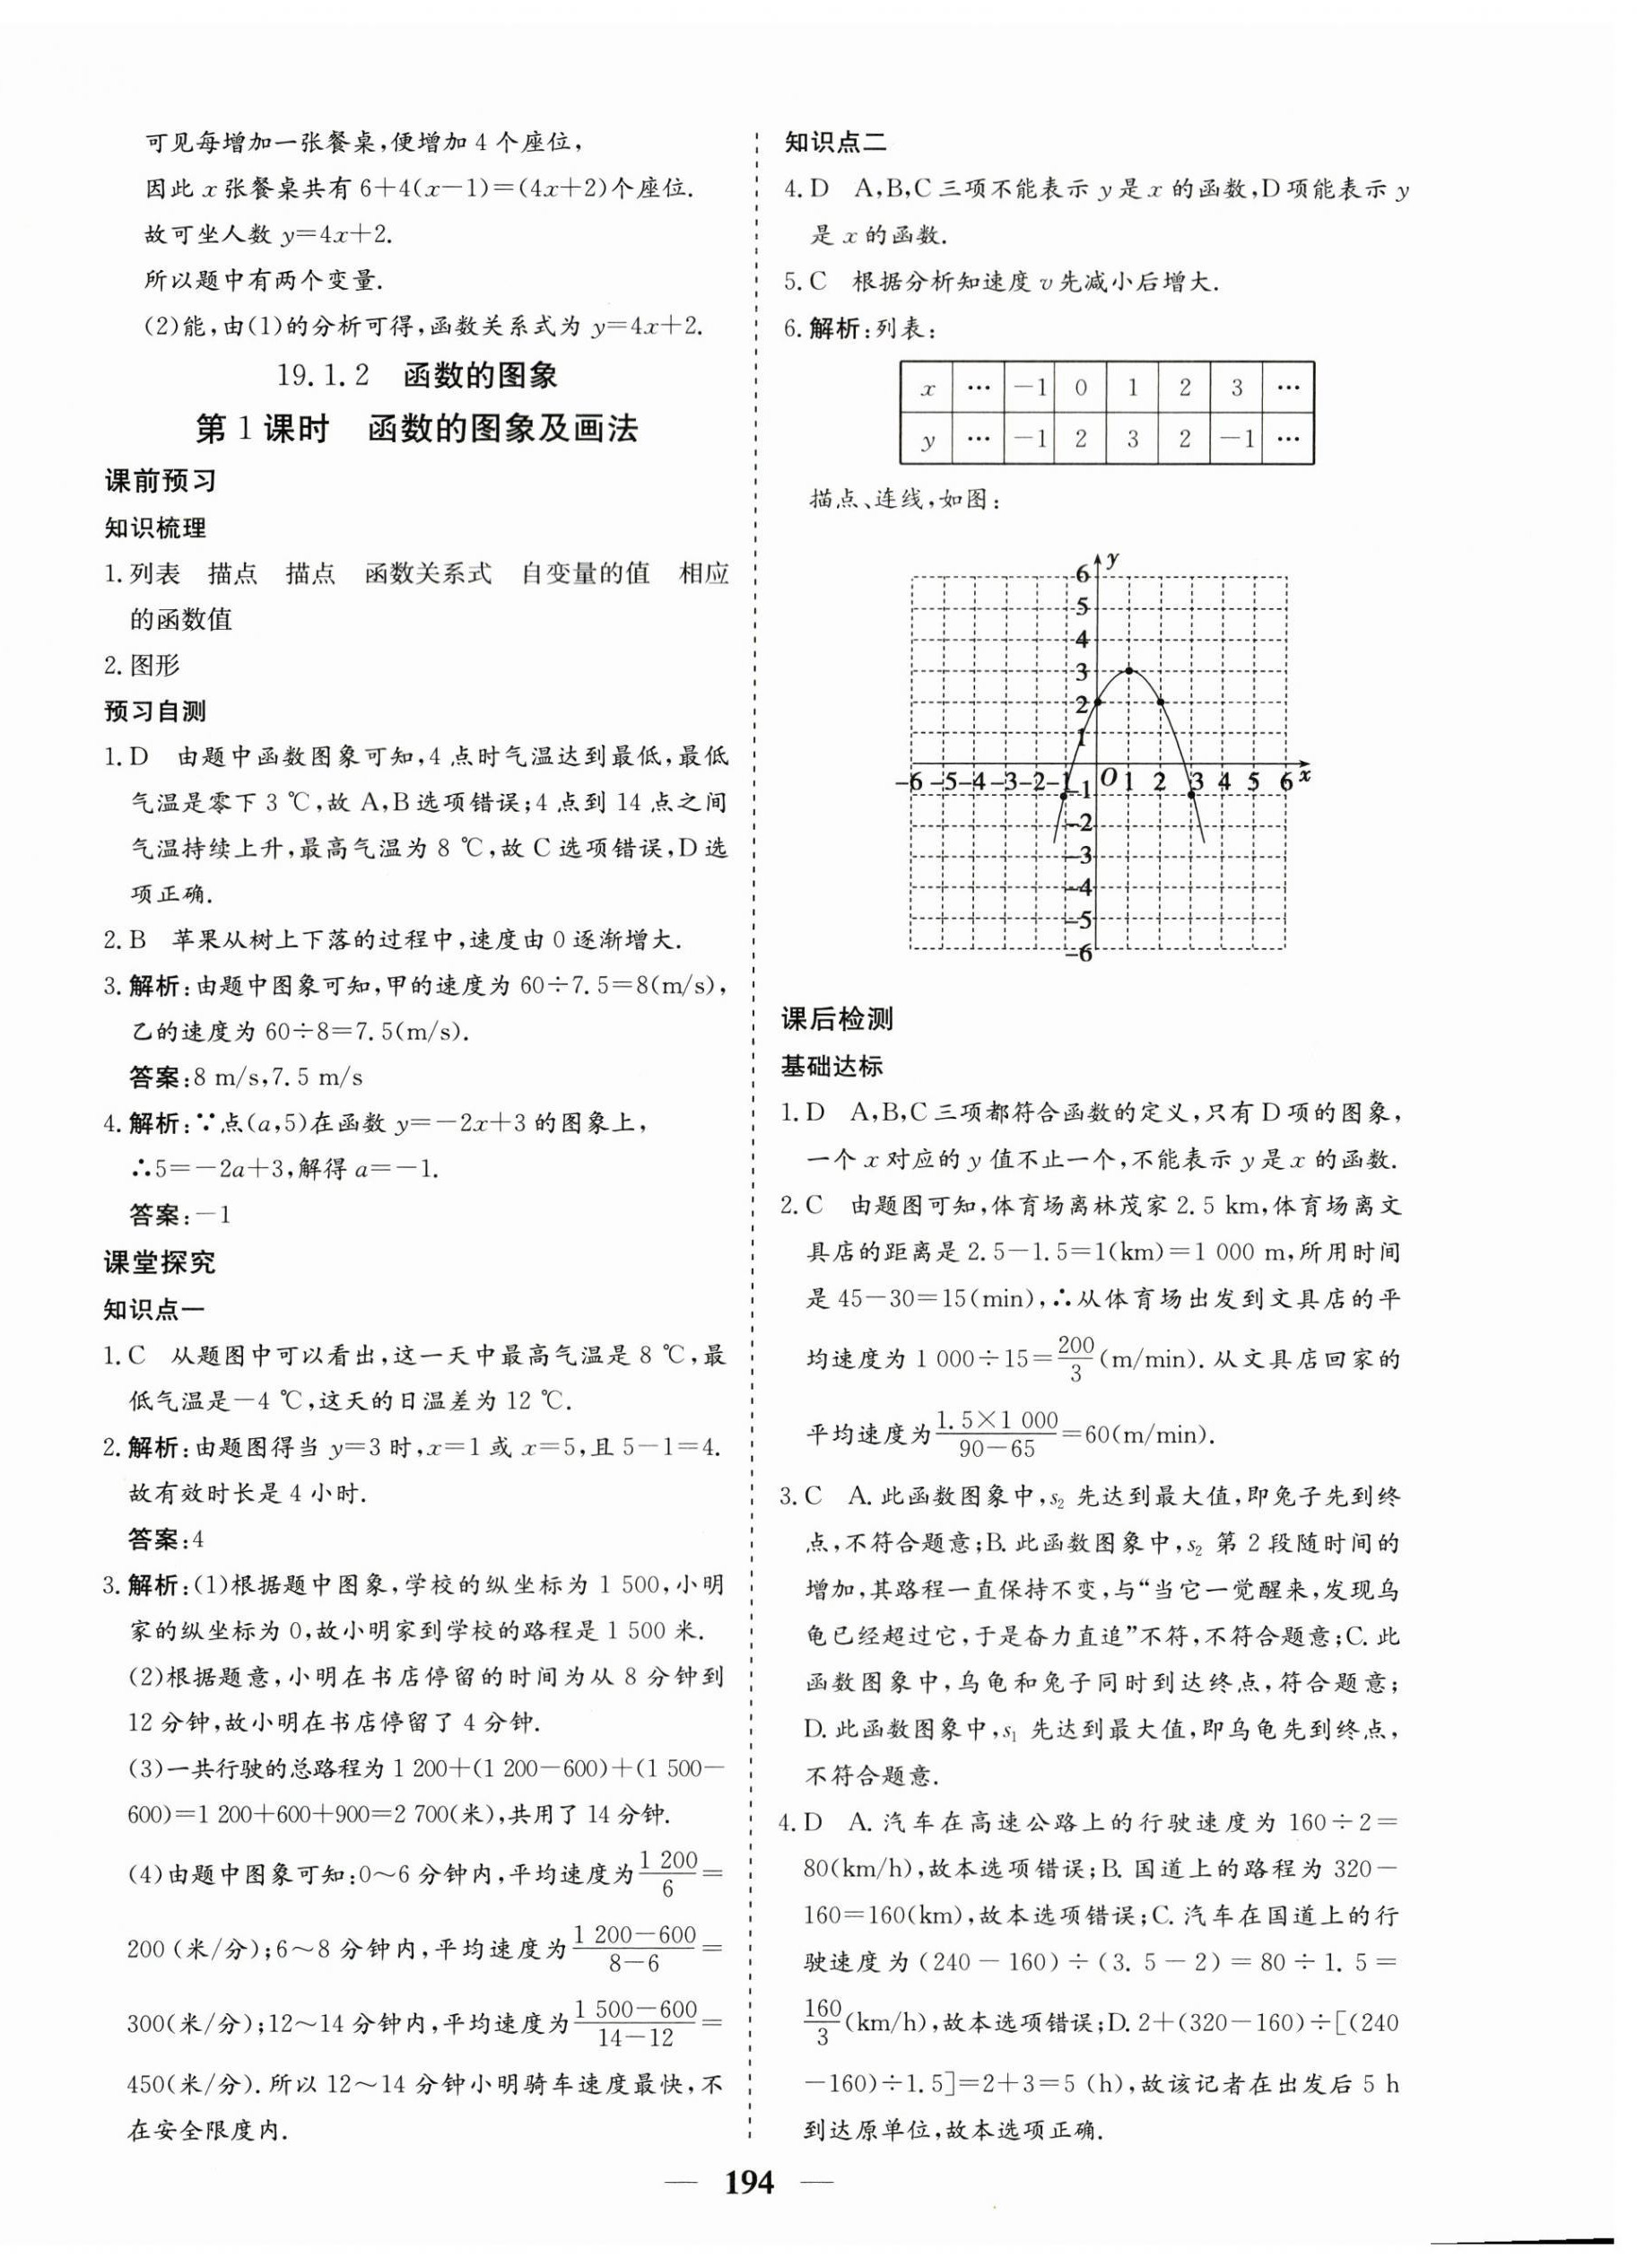 可见每增加一张餐桌,便增加 4 个座位,
因此 x 张餐桌共有 6+4(x-1)=(4x+2)个座位.
故可坐人数 y=4x+2.
所以题中有两个变量.
(2)能,由(1)的分析可得,函数关系式为 y=4x+2.
19.1.2 函数的图象
第 1 课时 函数的图象及画法
课前预习
知识梳理
1.列表 描点 描点 函数关系式 自变量的值 相应
的函数值
2.图形
预习自测
1.D 由题中函数图象可知,4 点时气温达到最低,最低
气温是零下 3 ℃,故 A,B 选项错误;4 点到 14 点之间
气温持续上升,最高气温为 8 ℃,故 C 选项错误,D 选
项正确.
2.B 苹果从树上下落的过程中,速度由 0 逐渐增大.
3.解析:由题中图象可知,甲的速度为 60÷7.5=8(m/s),
乙的速度为 60÷8=7.5(m/s).
答案:8 m/s,7.5 m/s
4.解析:∵点(a,5)在函数 y=-2x+3 的图象上,
∴5=-2a+3,解得 a=-1.
答案:-1
课堂探究
知识点一
1.C 从题图中可以看出,这一天中最高气温是 8 ℃,最
低气温是-4 ℃,这天的日温差为 12 ℃.
2.解析:由题图得当 y=3 时,x=1 或 x=5,且 5-1=4.
故有效时长是 4 小时.
答案:4
3.解析:(1)根据题中图象,学校的纵坐标为 1 500,小明
家的纵坐标为 0,故小明家到学校的路程是 1 500 米.
(2)根据题意,小明在书店停留的时间为从 8 分钟到
12 分钟,故小明在书店停留了 4 分钟.
(3)一共行驶的总路程为 1 200+(1 200-600)+(1 500-
600)=1 200+600+900=2 700(米),共用了 14 分钟.
(4)由题中图象可知:0~6 分钟内,平均速度为 1 200/6=
200 (米/分);6~8 分钟内,平均速度为 (1 200-600)/(8-6)=
300(米/分);12~14 分钟内,平均速度为 (1 500-600)/(14-12)=
450(米/分).所以 12~14 分钟小明骑车速度最快,不
在安全限度内.
知识点二
4.D A,B,C 三项不能表示 y 是 x 的函数,D 项能表示 y
是 x 的函数.
5.C 根据分析知速度 v 先减小后增大.
6.解析:列表:
x … -1 0 1 2 3 …
y … -1 2 3 2 -1 …
描点、连线,如图:
y
6
5
4
3
2
1
-6 -5 -4 -3 -2 -1 O 1 2 3 4 5 6 x
-1
-2
-3
-4
-5
-6
课后检测
基础达标
1.D A,B,C 三项都符合函数的定义,只有 D 项的图象,
一个 x 对应的 y 值不止一个,不能表示 y 是 x 的函数.
2.C 由题图可知,体育场离林茂家 2.5 km,体育场离文
具店的距离是 2.5-1.5=1(km)=1 000 m,所用时间
是 45-30=15(min),∴从体育场出发到文具店的平
均速度为 1 000÷15=200/3(m/min).从文具店回家的
平均速度为 (1.5×1 000)/(90-65)=60(m/min).
3.C A.此函数图象中,s₂ 先达到最大值,即兔子先到终
点,不符合题意;B.此函数图象中,s₂ 第 2 段随时间的
增加,其路程一直保持不变,与“当它一觉醒来,发现乌
龟已经超过它,于是奋力直追”不符,不符合题意;C.此
函数图象中,乌龟和兔子同时到达终点,符合题意;
D.此函数图象中,s₁ 先达到最大值,即乌龟先到终点,
不符合题意.
4.D A.汽车在高速公路上的行驶速度为 160÷2=
80(km/h),故本选项错误;B.国道上的路程为 320-
160=160(km),故本选项错误;C.汽车在国道上的行
驶速度为(240-160)÷(3.5-2)=80÷1.5=
160/3(km/h),故本选项错误;D.2+(320-160)÷[(240
-160)÷1.5]=2+3=5 (h),故该记者在出发后 5 h
到达原单位,故本选项正确.
— 194 —